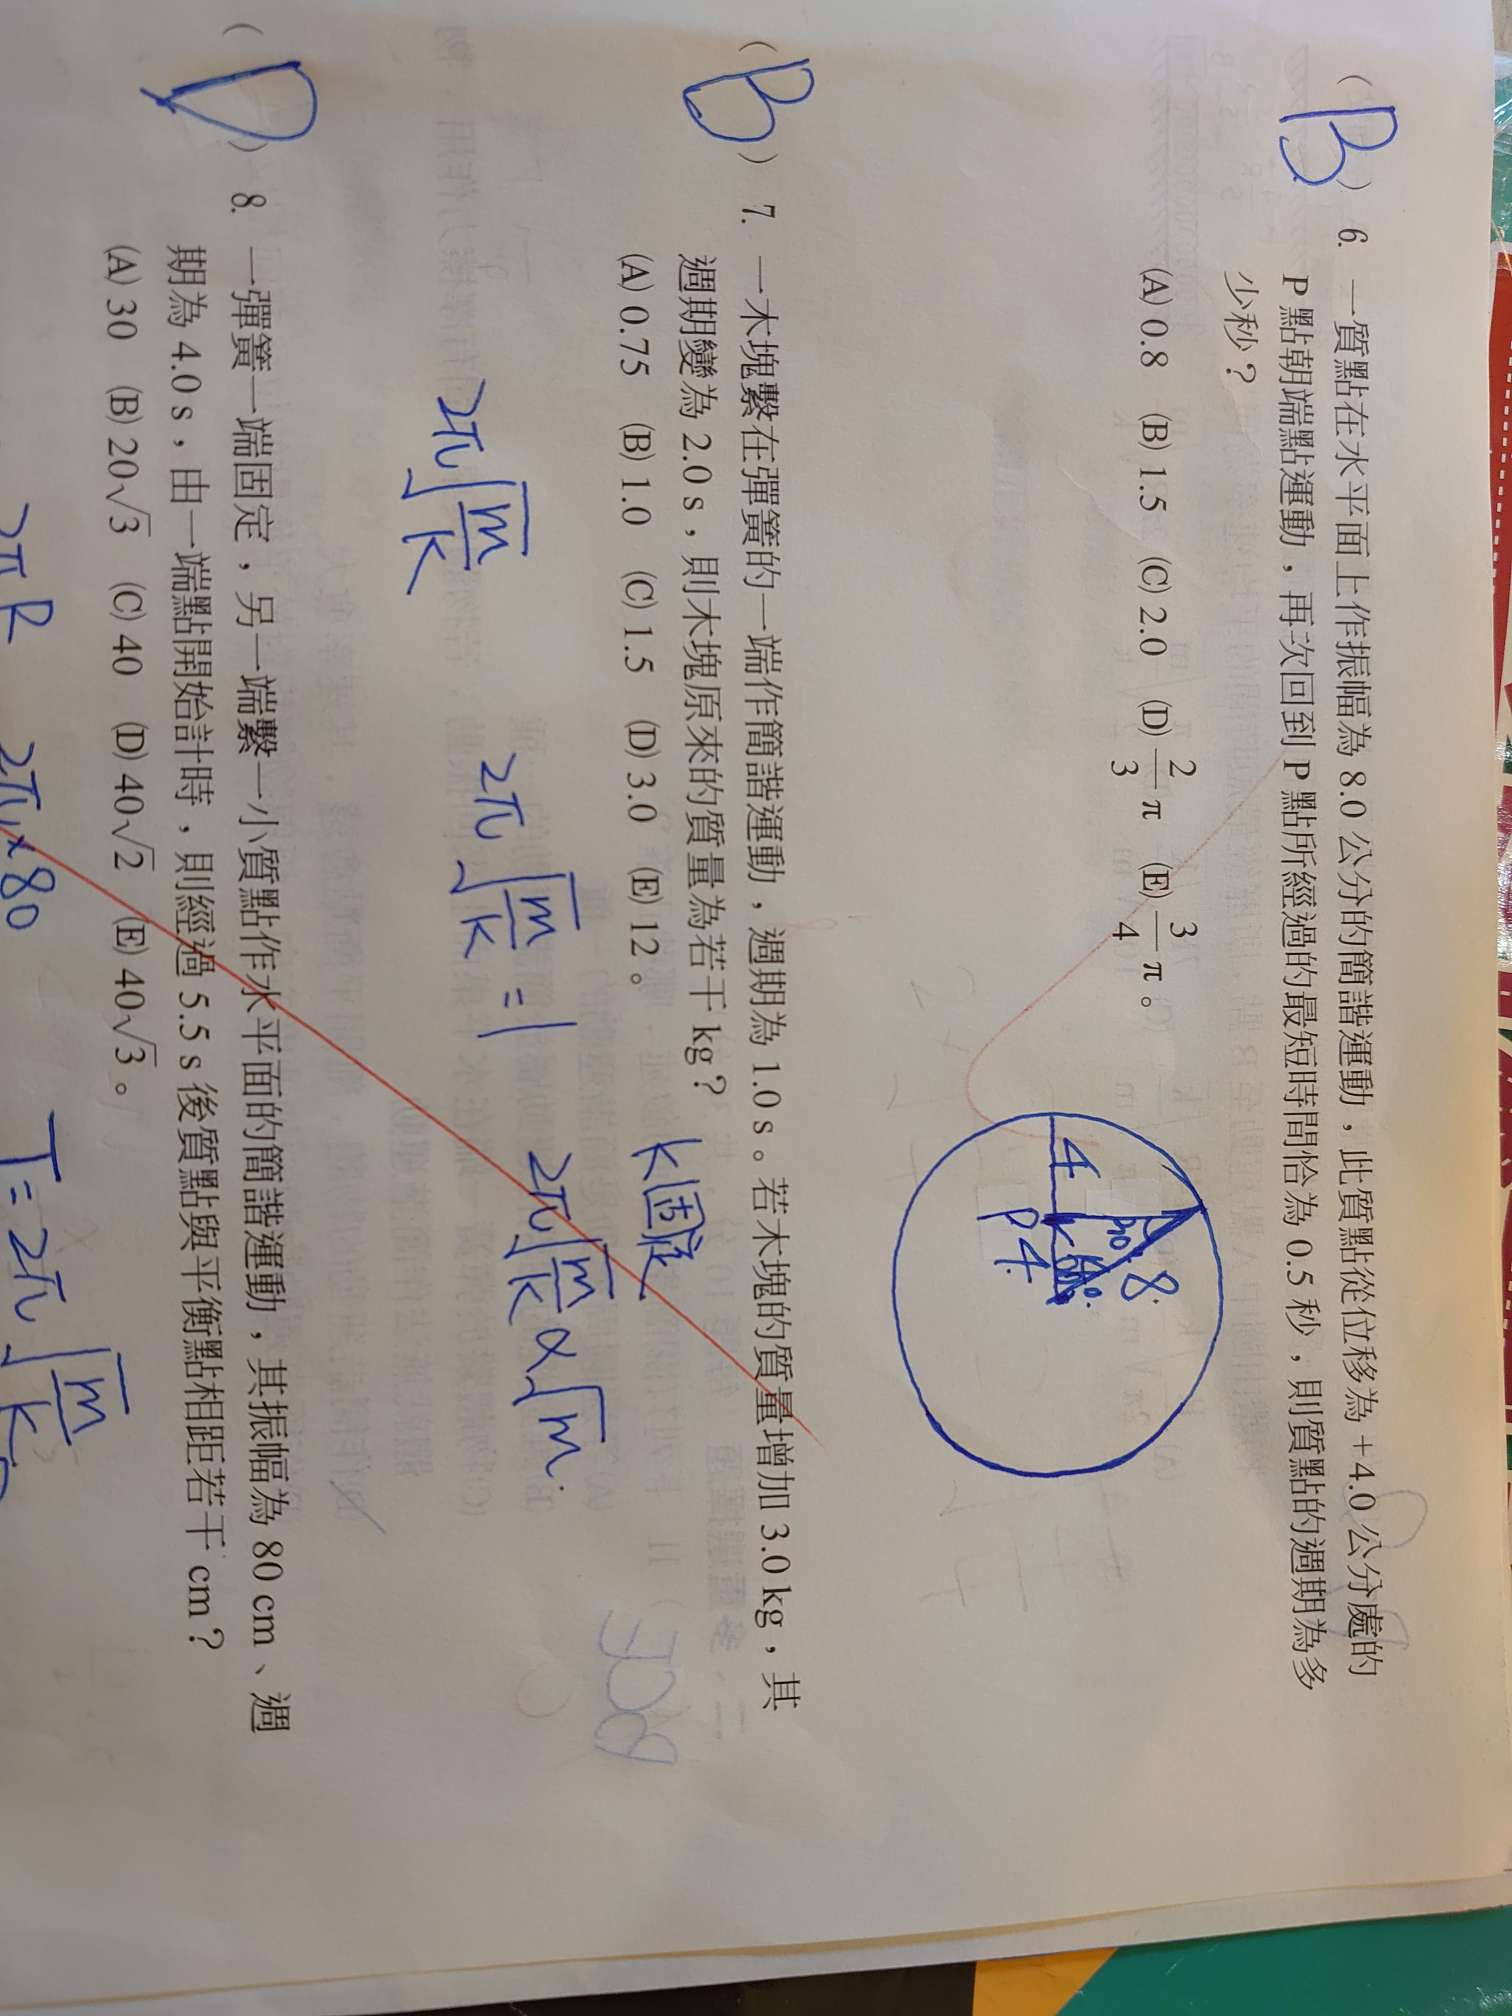 (B) 6. 一質點在水平面上作振幅為 8.0 公分的簡諧運動，此質點從位移為 +4.0 公分處的
P 點朝端點運動，再次回到 P 點所經過的最短時間恰為 0.5 秒，則質點的週期為多
少秒？
(A) 0.8 (B) 1.5 (C) 2.0 (D) 2/3 π (E) 3/4 π。
4
8
P 4
(B) 7. 一木塊繫在彈簧的一端作簡諧運動，週期為 1.0 s。若木塊的質量增加 3.0 kg，其
週期變為 2.0 s，則木塊原來的質量為若干 kg？
(A) 0.75 (B) 1.0 (C) 1.5 (D) 3.0 (E) 12。
K固定
2π√(m/k)
2π√(m/k) = 1
2π√(m/k) α √m
(D) 8. 一彈簧一端固定，另一端繫一小質點作水平面的簡諧運動，其振幅為 80 cm、週
期為 4.0 s，由一端點開始計時，則經過 5.5 s 後質點與平衡點相距若干 cm？
(A) 30 (B) 20√3 (C) 40 (D) 40√2 (E) 40√3。
2πR
2π×80
T = 2π√(m/k)